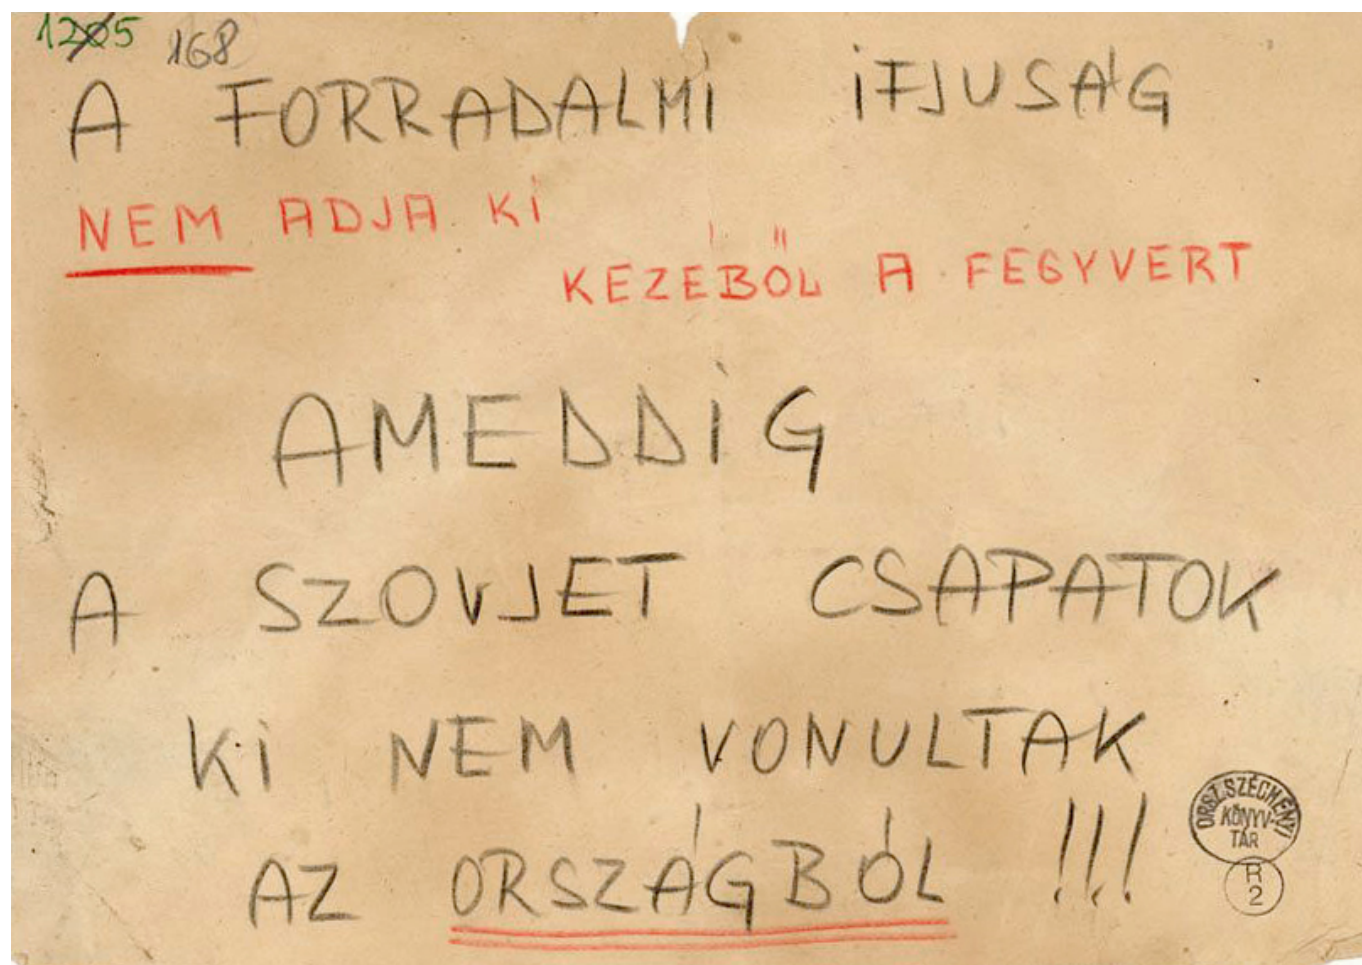 1205 168
A FORRADALMI IFJUSÁG
NEM ADJA KI
KEZÉBŐL A FEGYVERT
AMEDDIG
A SZOVJET CSAPATOK
KI NEM VONULTAK
AZ ORSZÁGBÓL !!!
ORSZ. SZÉCHÉNYI
KÖNYV-
TÁR
R
2